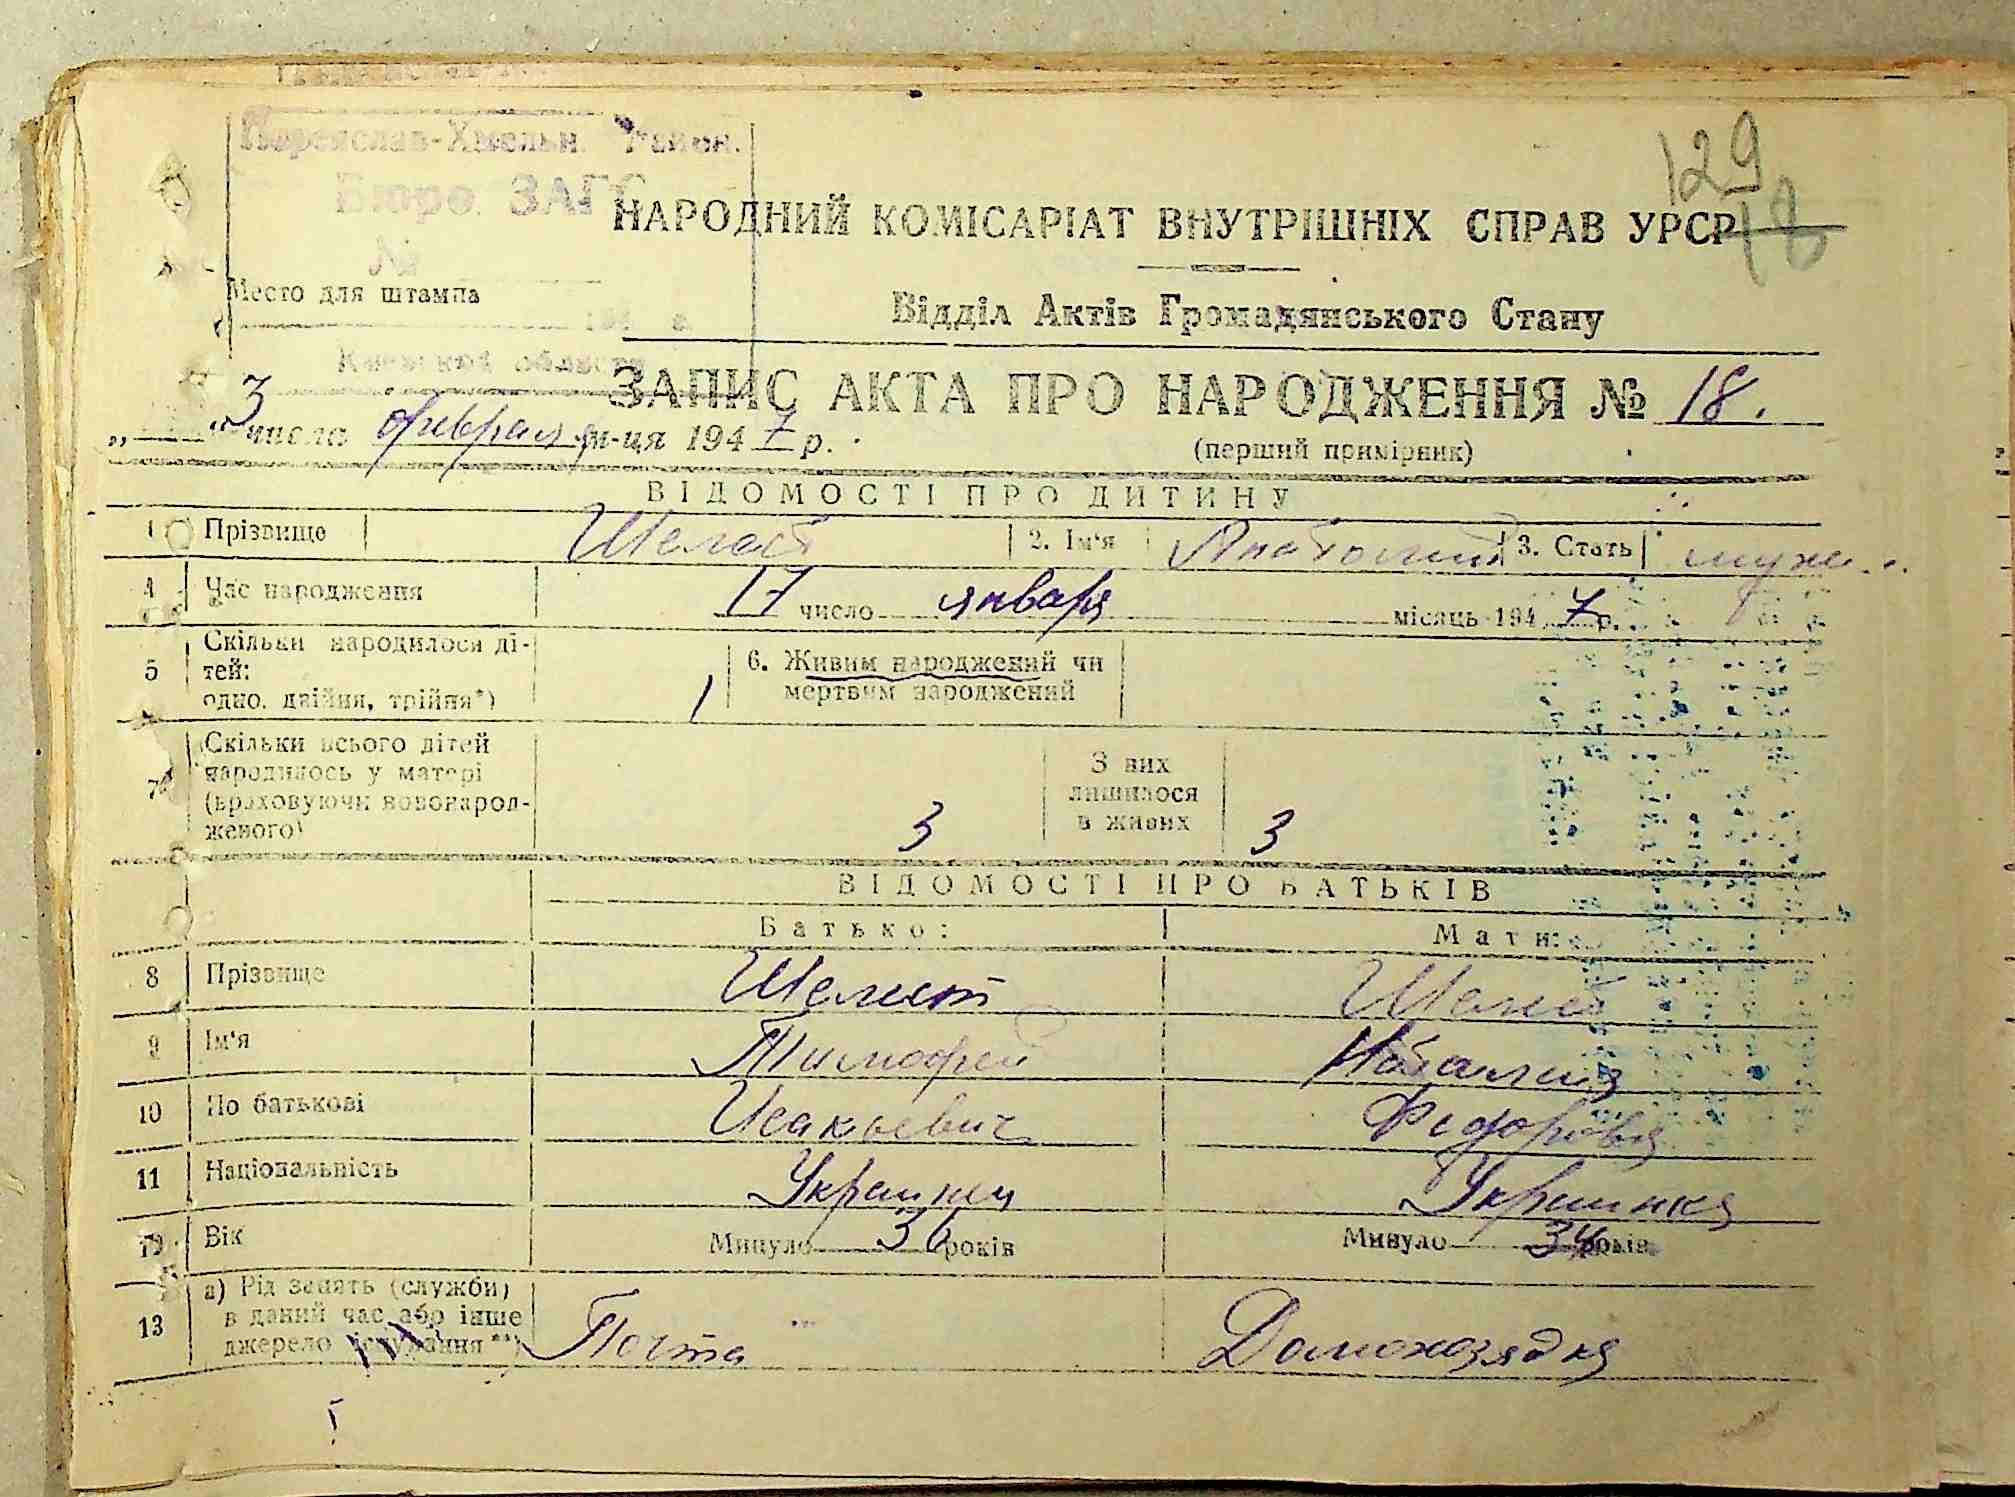 Переяслав-Хмельн. Район.
Бюро ЗАГС
№
129
18
НАРОДНИЙ КОМІСАРІАТ ВНУТРІШНІХ СПРАВ УРСР
Место для штампа
Відділ Актів Громадянського Стану
Киевской области
ЗАПИС АКТА ПРО НАРОДЖЕННЯ № 18.
„3“ числа февраля м-ця 1947 р.
(перший примірник)
ВІДОМОСТІ ПРО ДИТИНУ
1 Прізвище Шелест 2. Ім'я Анатолий 3. Стать муж.
4 Час народження 17 число января місяць 1947 р.
5 Скільки народилося ді-
тей:
одно, двійня, трійня*) 1
6. Живим народжений чи
мертвим народжений
7 Скільки всього дітей
народилось у матері
(враховуючи новонарод-
женого) 3
З них
лишилося
в живих 3
ВІДОМОСТІ ПРО БАТЬКІВ
Батько: Мати:
8 Прізвище Шелест Шелест
9 Ім'я Тимофей Наталия
10 По батькові Исакьевич Федоровна
11 Національність Украинец Украинка
12 Вік Минуло 36 років Минуло 34 років
13 а) Рід занять (служби)
в даний час або інше
джерело існування**) Почта Домохозядка